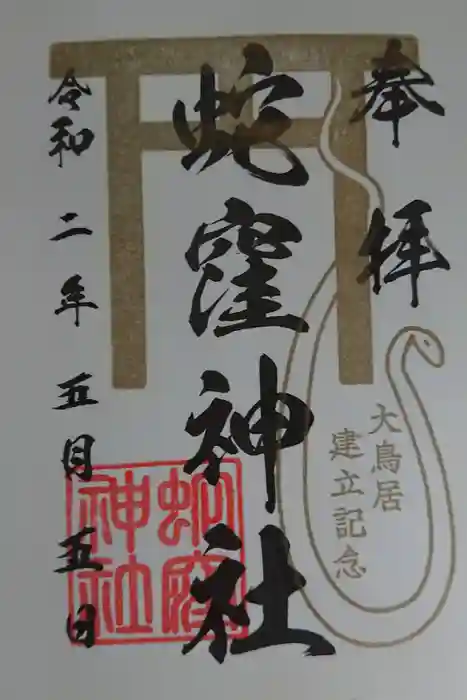 奉拝
大鳥居
建立記念
蛇窪神社
令和二年五月五日
蛇窪
神社